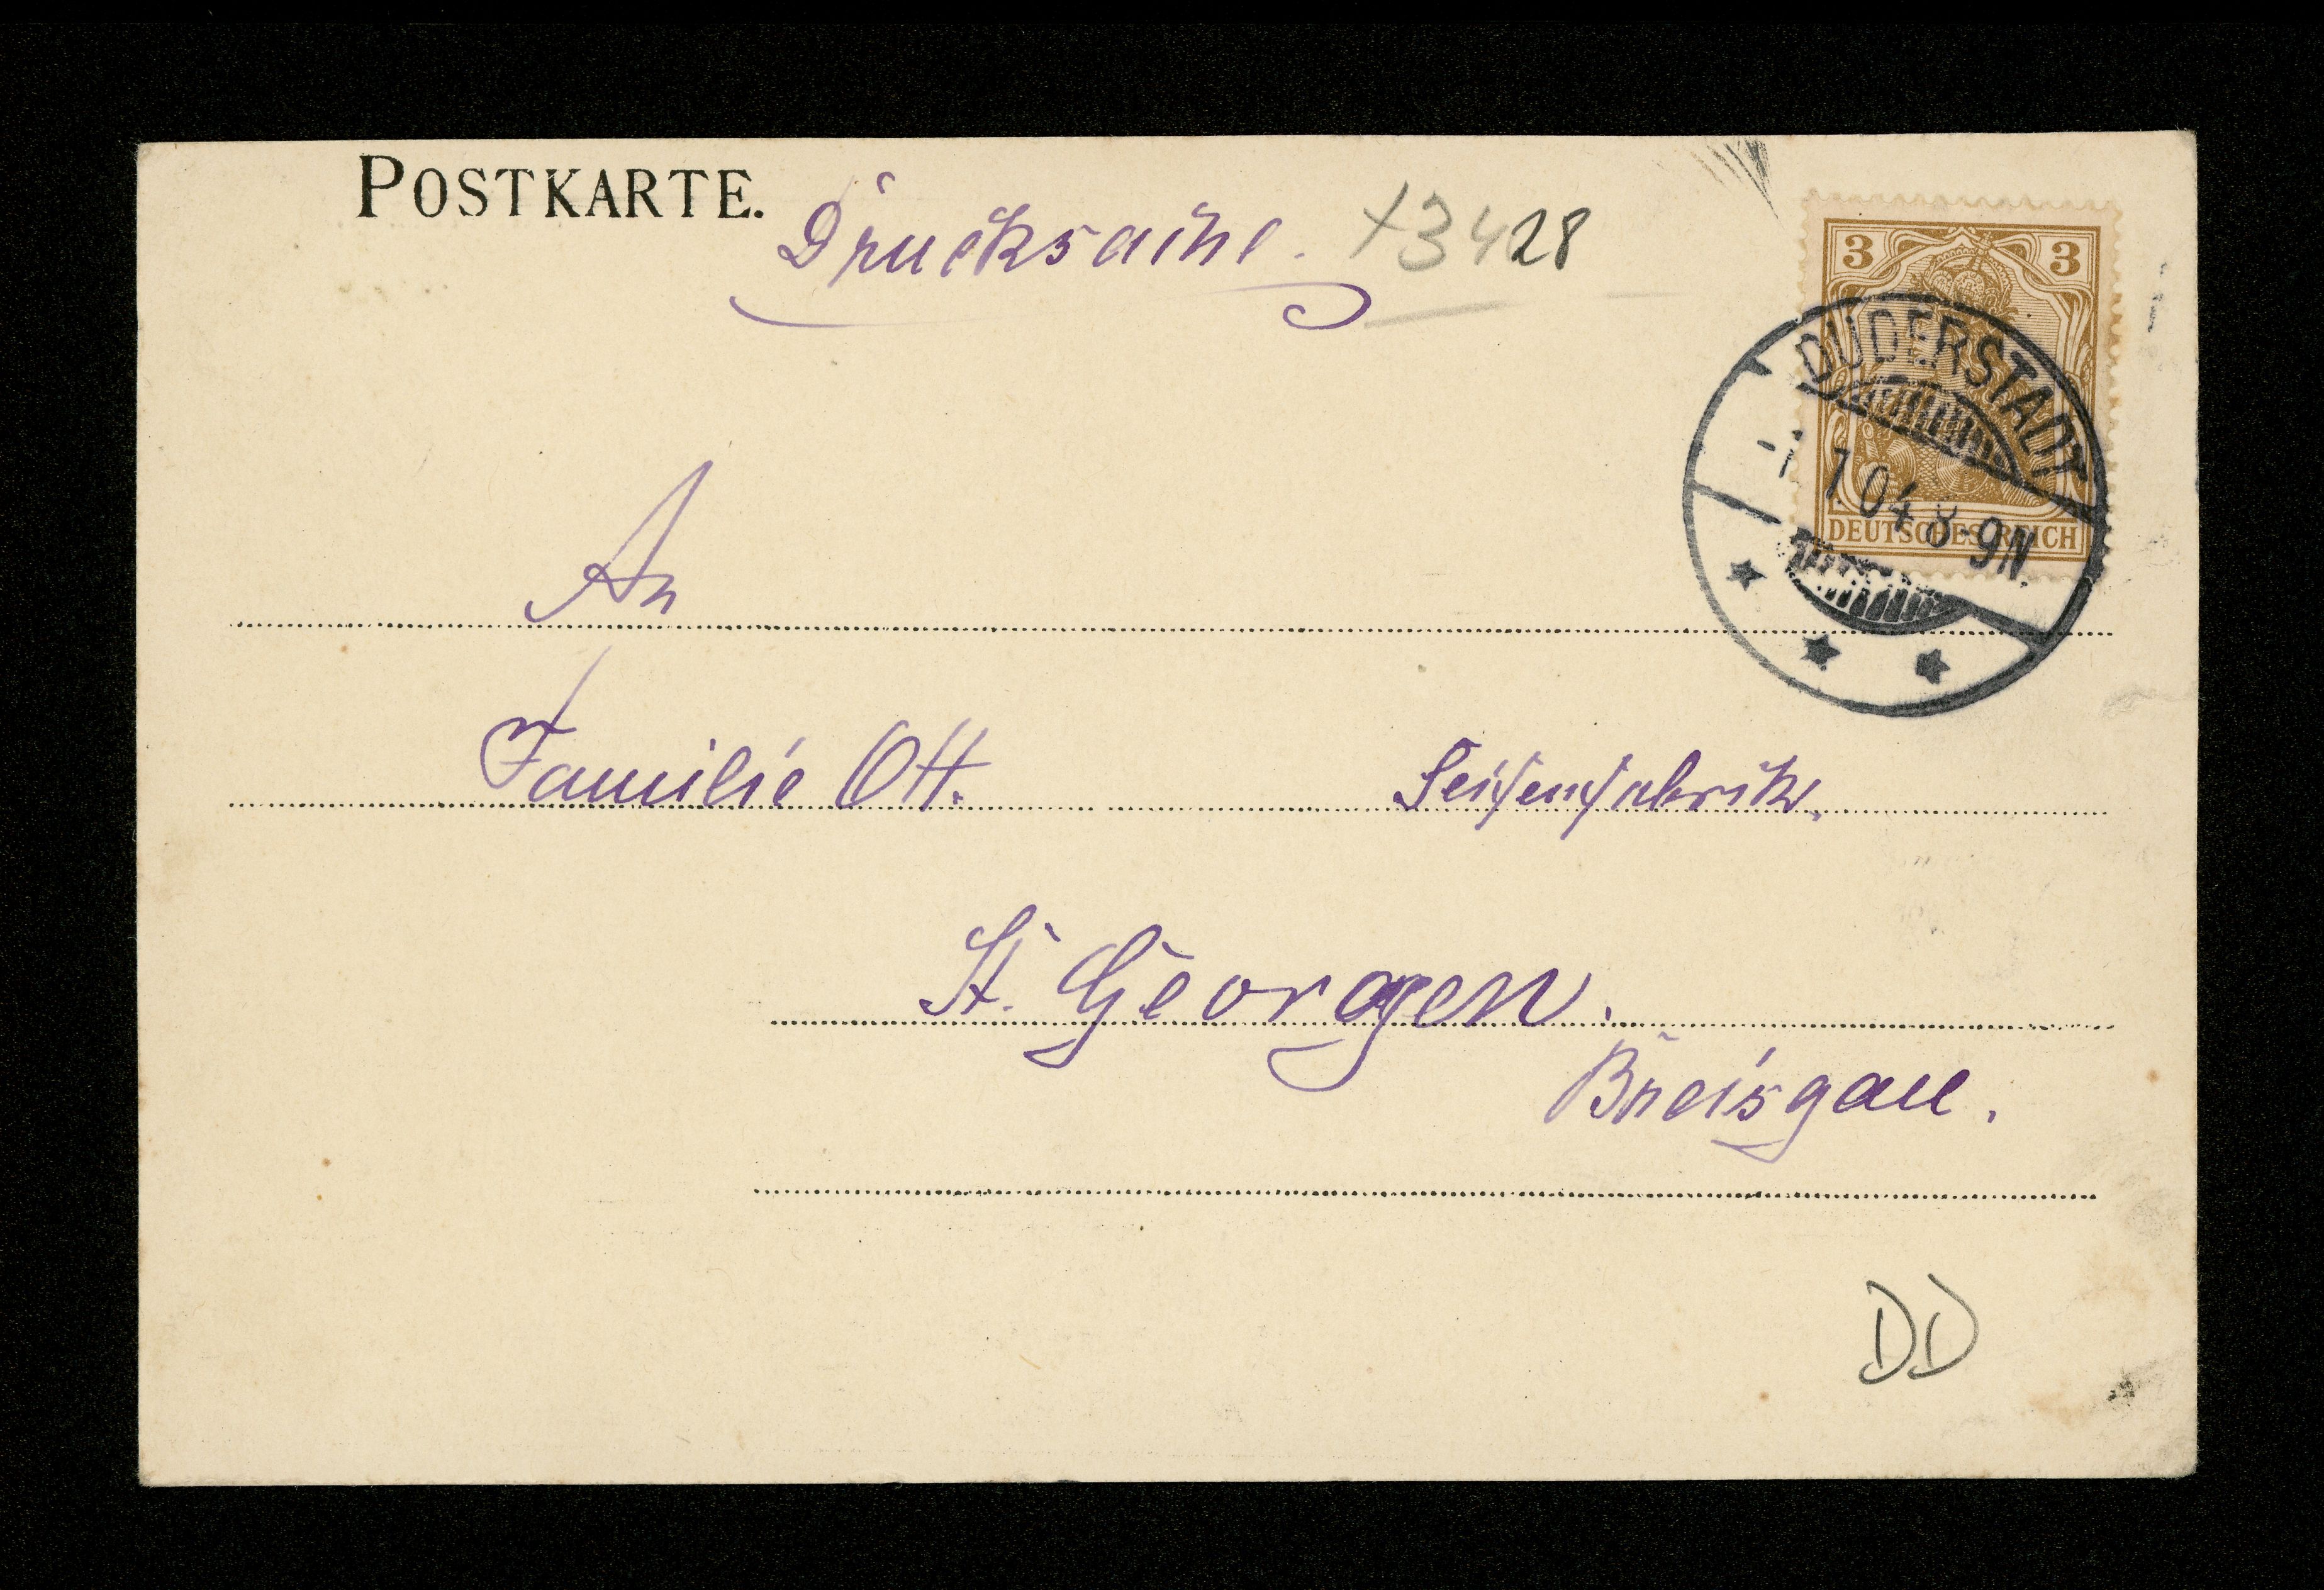 POSTKARTE.
Drucksache. +3428
3 3
DUDERSTADT
-1.1.04 8-9N.
DEUTSCHES REICH
An
Familie Ott. Seifenfabrik,
St. Georgen.
Breisgau.
DD